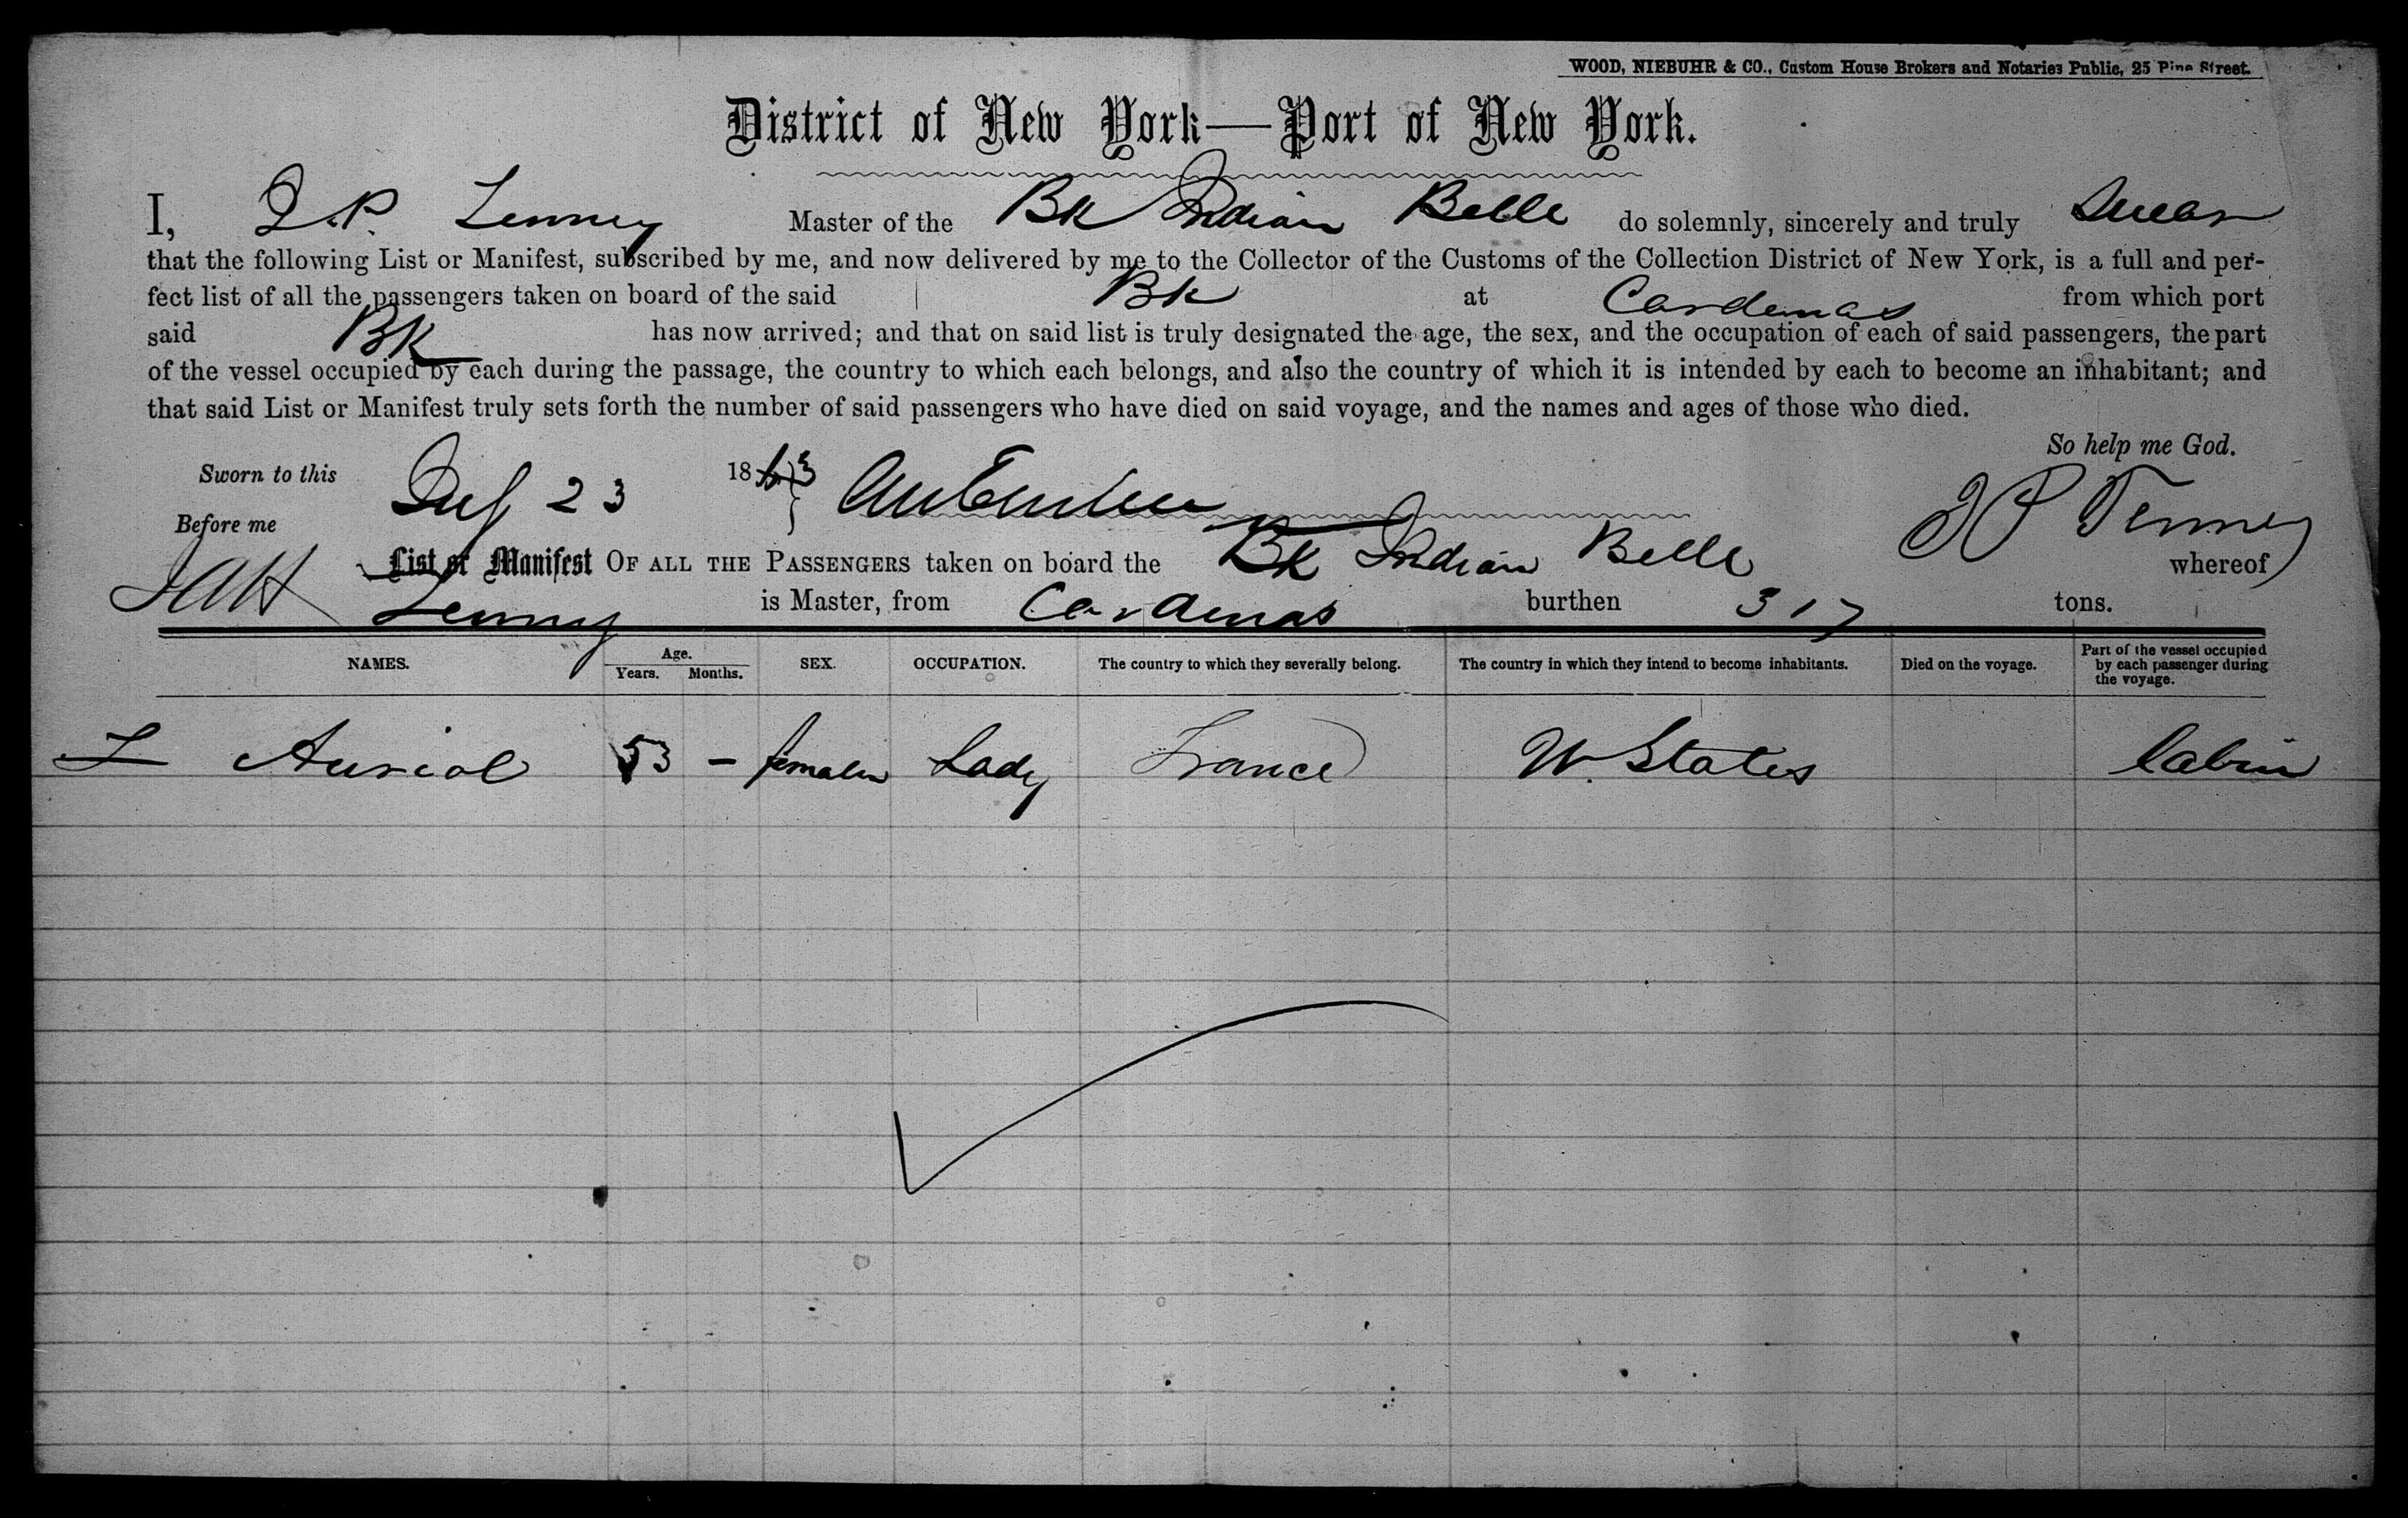 WOOD, NIEBUHR & CO., Custom House Brokers and Notaries Public, 25 Pine Street.
District of New York—Port of New York.
I, J.P. Tenney Master of the Bk Indian Belle do solemnly, sincerely and truly Swear
that the following List or Manifest, subscribed by me, and now delivered by me to the Collector of the Customs of the Collection District of New York, is a full and per-
fect list of all the passengers taken on board of the said Bk at Cardenas from which port
said Bk has now arrived; and that on said list is truly designated the age, the sex, and the occupation of each of said passengers, the part
of the vessel occupied by each during the passage, the country to which each belongs, and also the country of which it is intended by each to become an inhabitant; and
that said List or Manifest truly sets forth the number of said passengers who have died on said voyage, and the names and ages of those who died.
So help me God.
Sworn to this 23 1863
Before me J P Tenney
List or Manifest OF ALL THE PASSENGERS taken on board the Bk Indian Belle whereof
Tenney is Master, from Cardenas burthen 317 tons.
NAMES. Age. Years. Months. SEX. OCCUPATION. The country to which they severally belong. The country in which they intend to become inhabitants. Died on the voyage. Part of the vessel occupied by each passenger during the voyage.
L Auriol 53 – female Lady France U. States Cabin